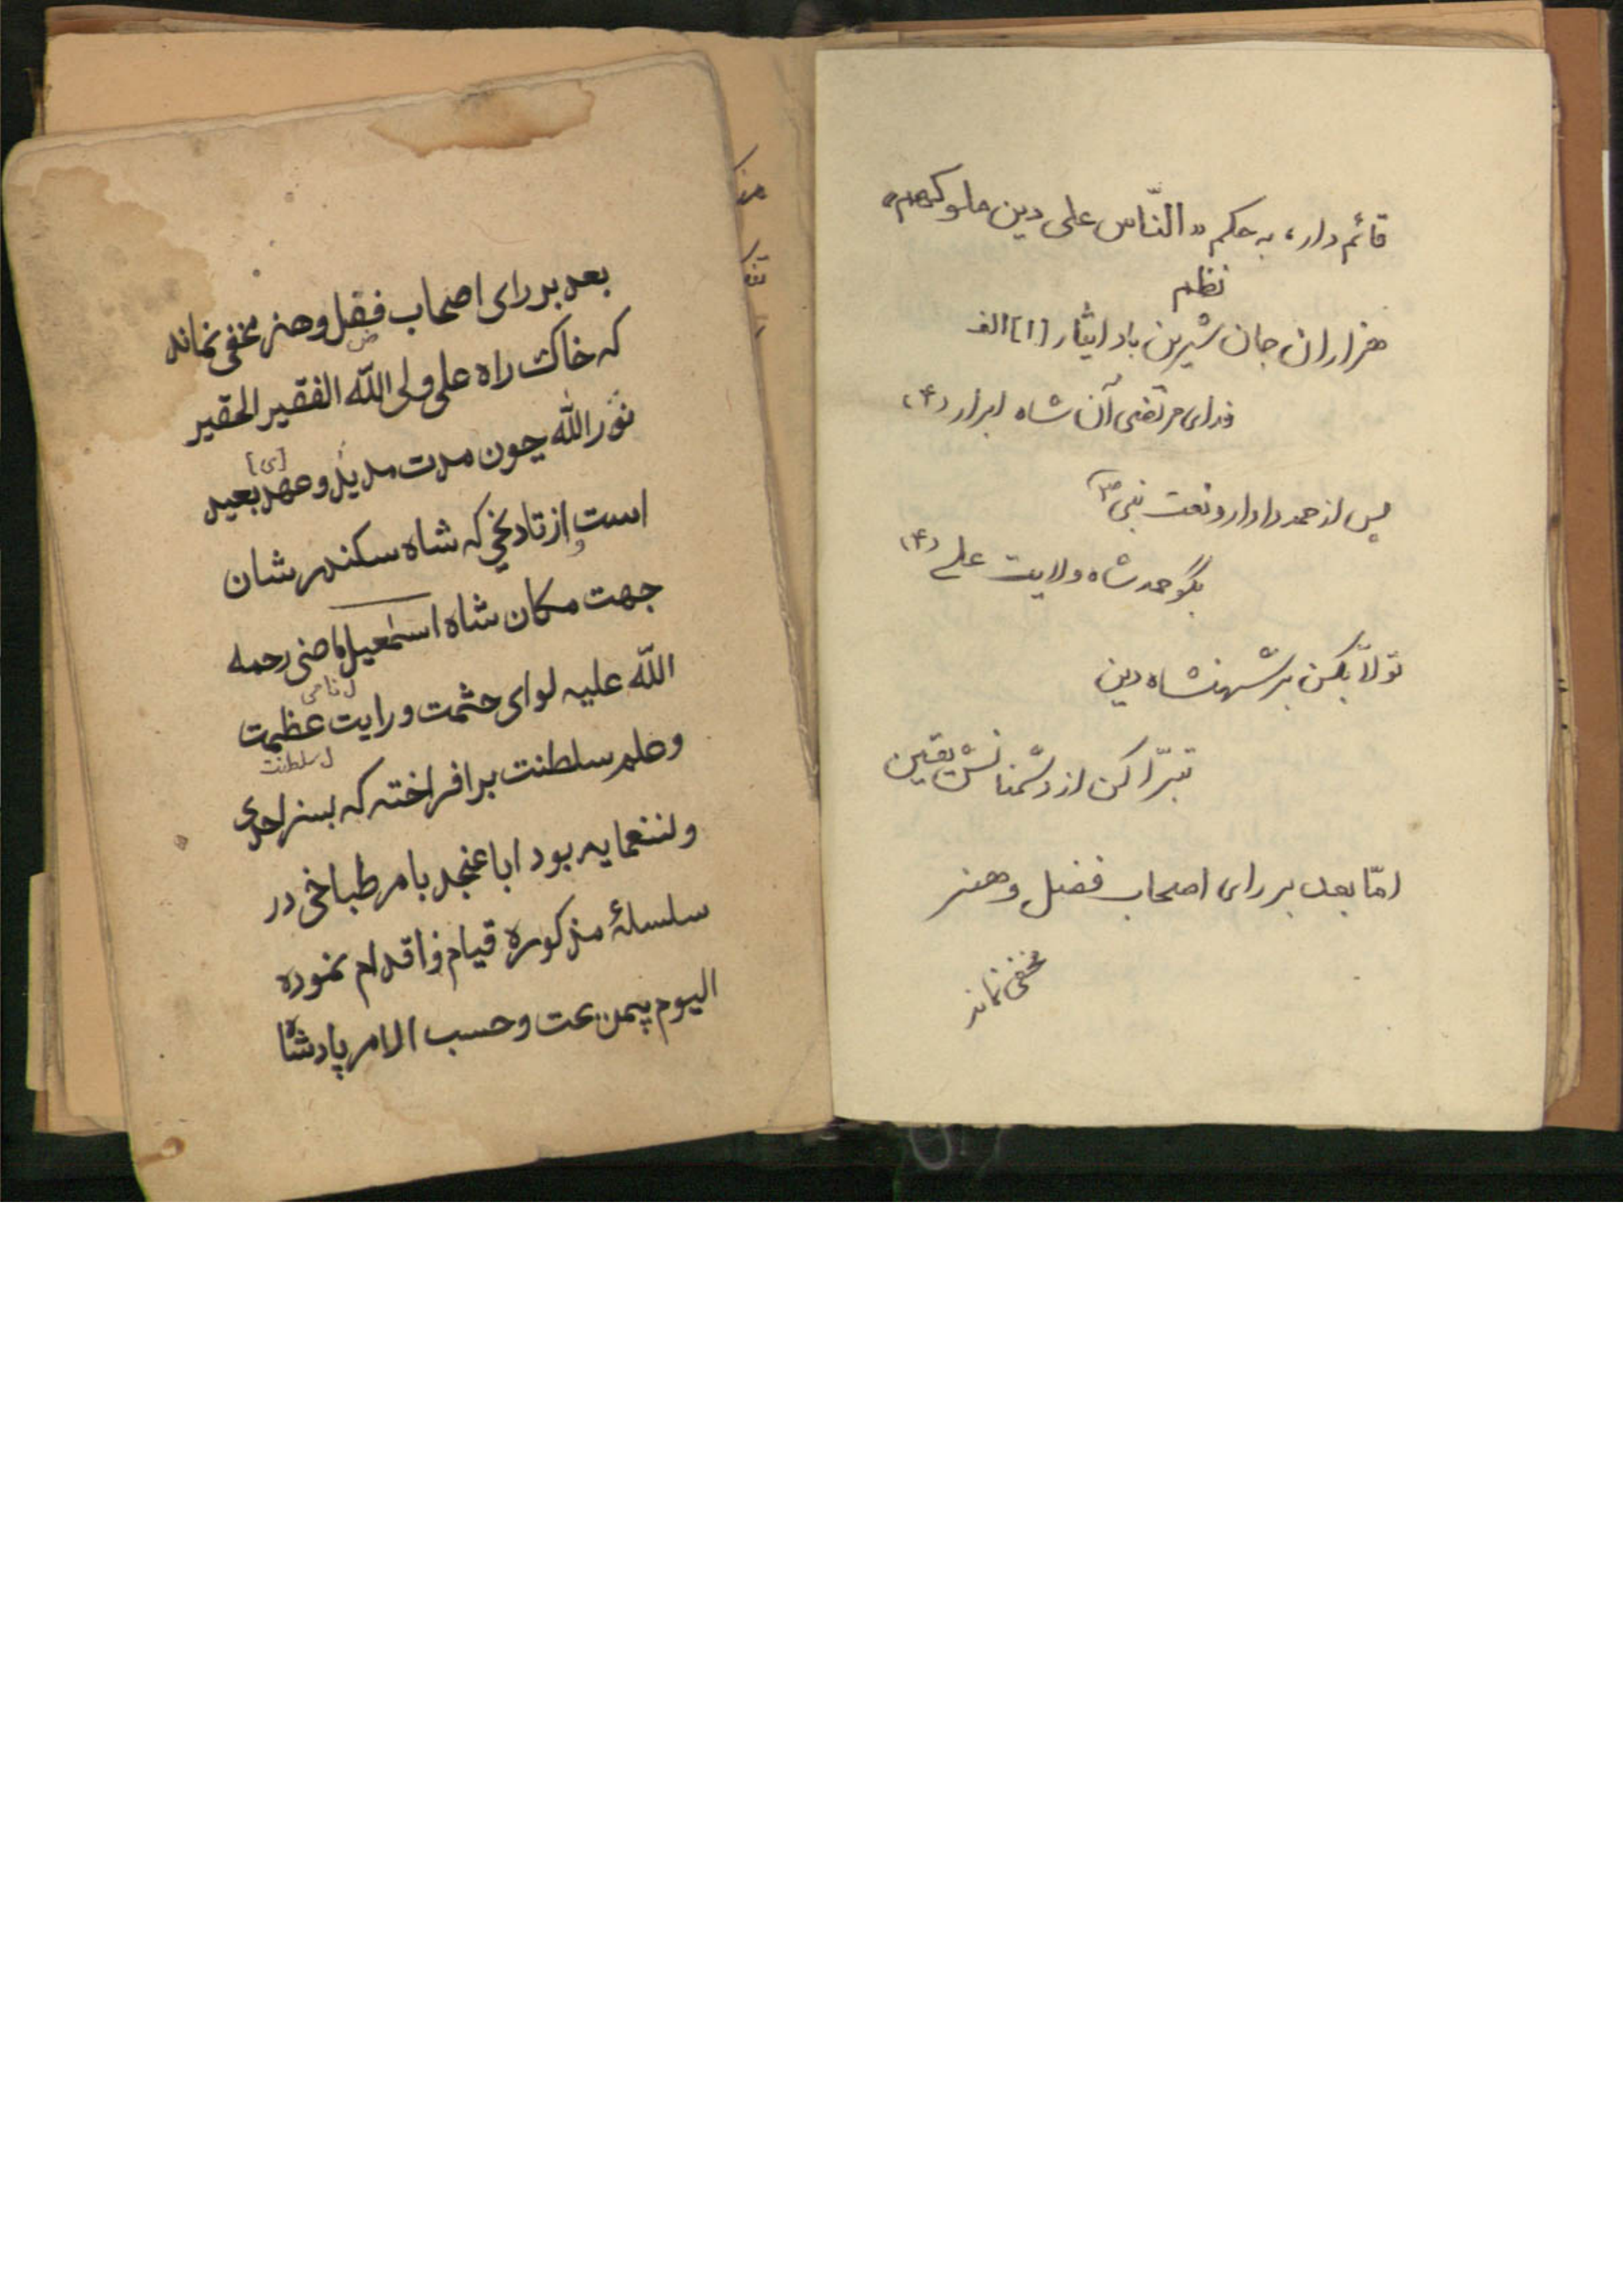 قائم دار، به حکم «النّاس علی دین ملوکهم»
نظم
هزاران جان شیرین باد ایثار [۱] الف
فدای مرتضی آن شاه ابرار (۴)
پس از حمد دادار و نعت نبی ص
بگو حمد شاه ولایت علی (۴)
تولاّ بکن بر شهنشاه دین
تبرّا کن از دشمنانش یقین
امّا بعد بر رای اصحاب فضل و هنر
مخفی نماند
بعد بر رای اصحاب فقل و هنر مخفی نماند
ض
که خاک راه علی ولی الله الفقیر الحقیر
نور الله چون مدت مدید و عهد بعید
[ی]
است از تاریخی که شاه سکندر شان
و
جهت مکان شاه اسمعیل ماضی رحمه
الله علیه لوای حشمت و رایت عظمت
ل نامی
و علم سلطنت برافراخته که بسنراحدی
ل سلطنت
ولننعمایه بود اباعنجد بامر طباخی در
سلسلهٔ مذکوره قیام و اقدام نموده
الیوم بیمن عت و حسب الامر پادشاه